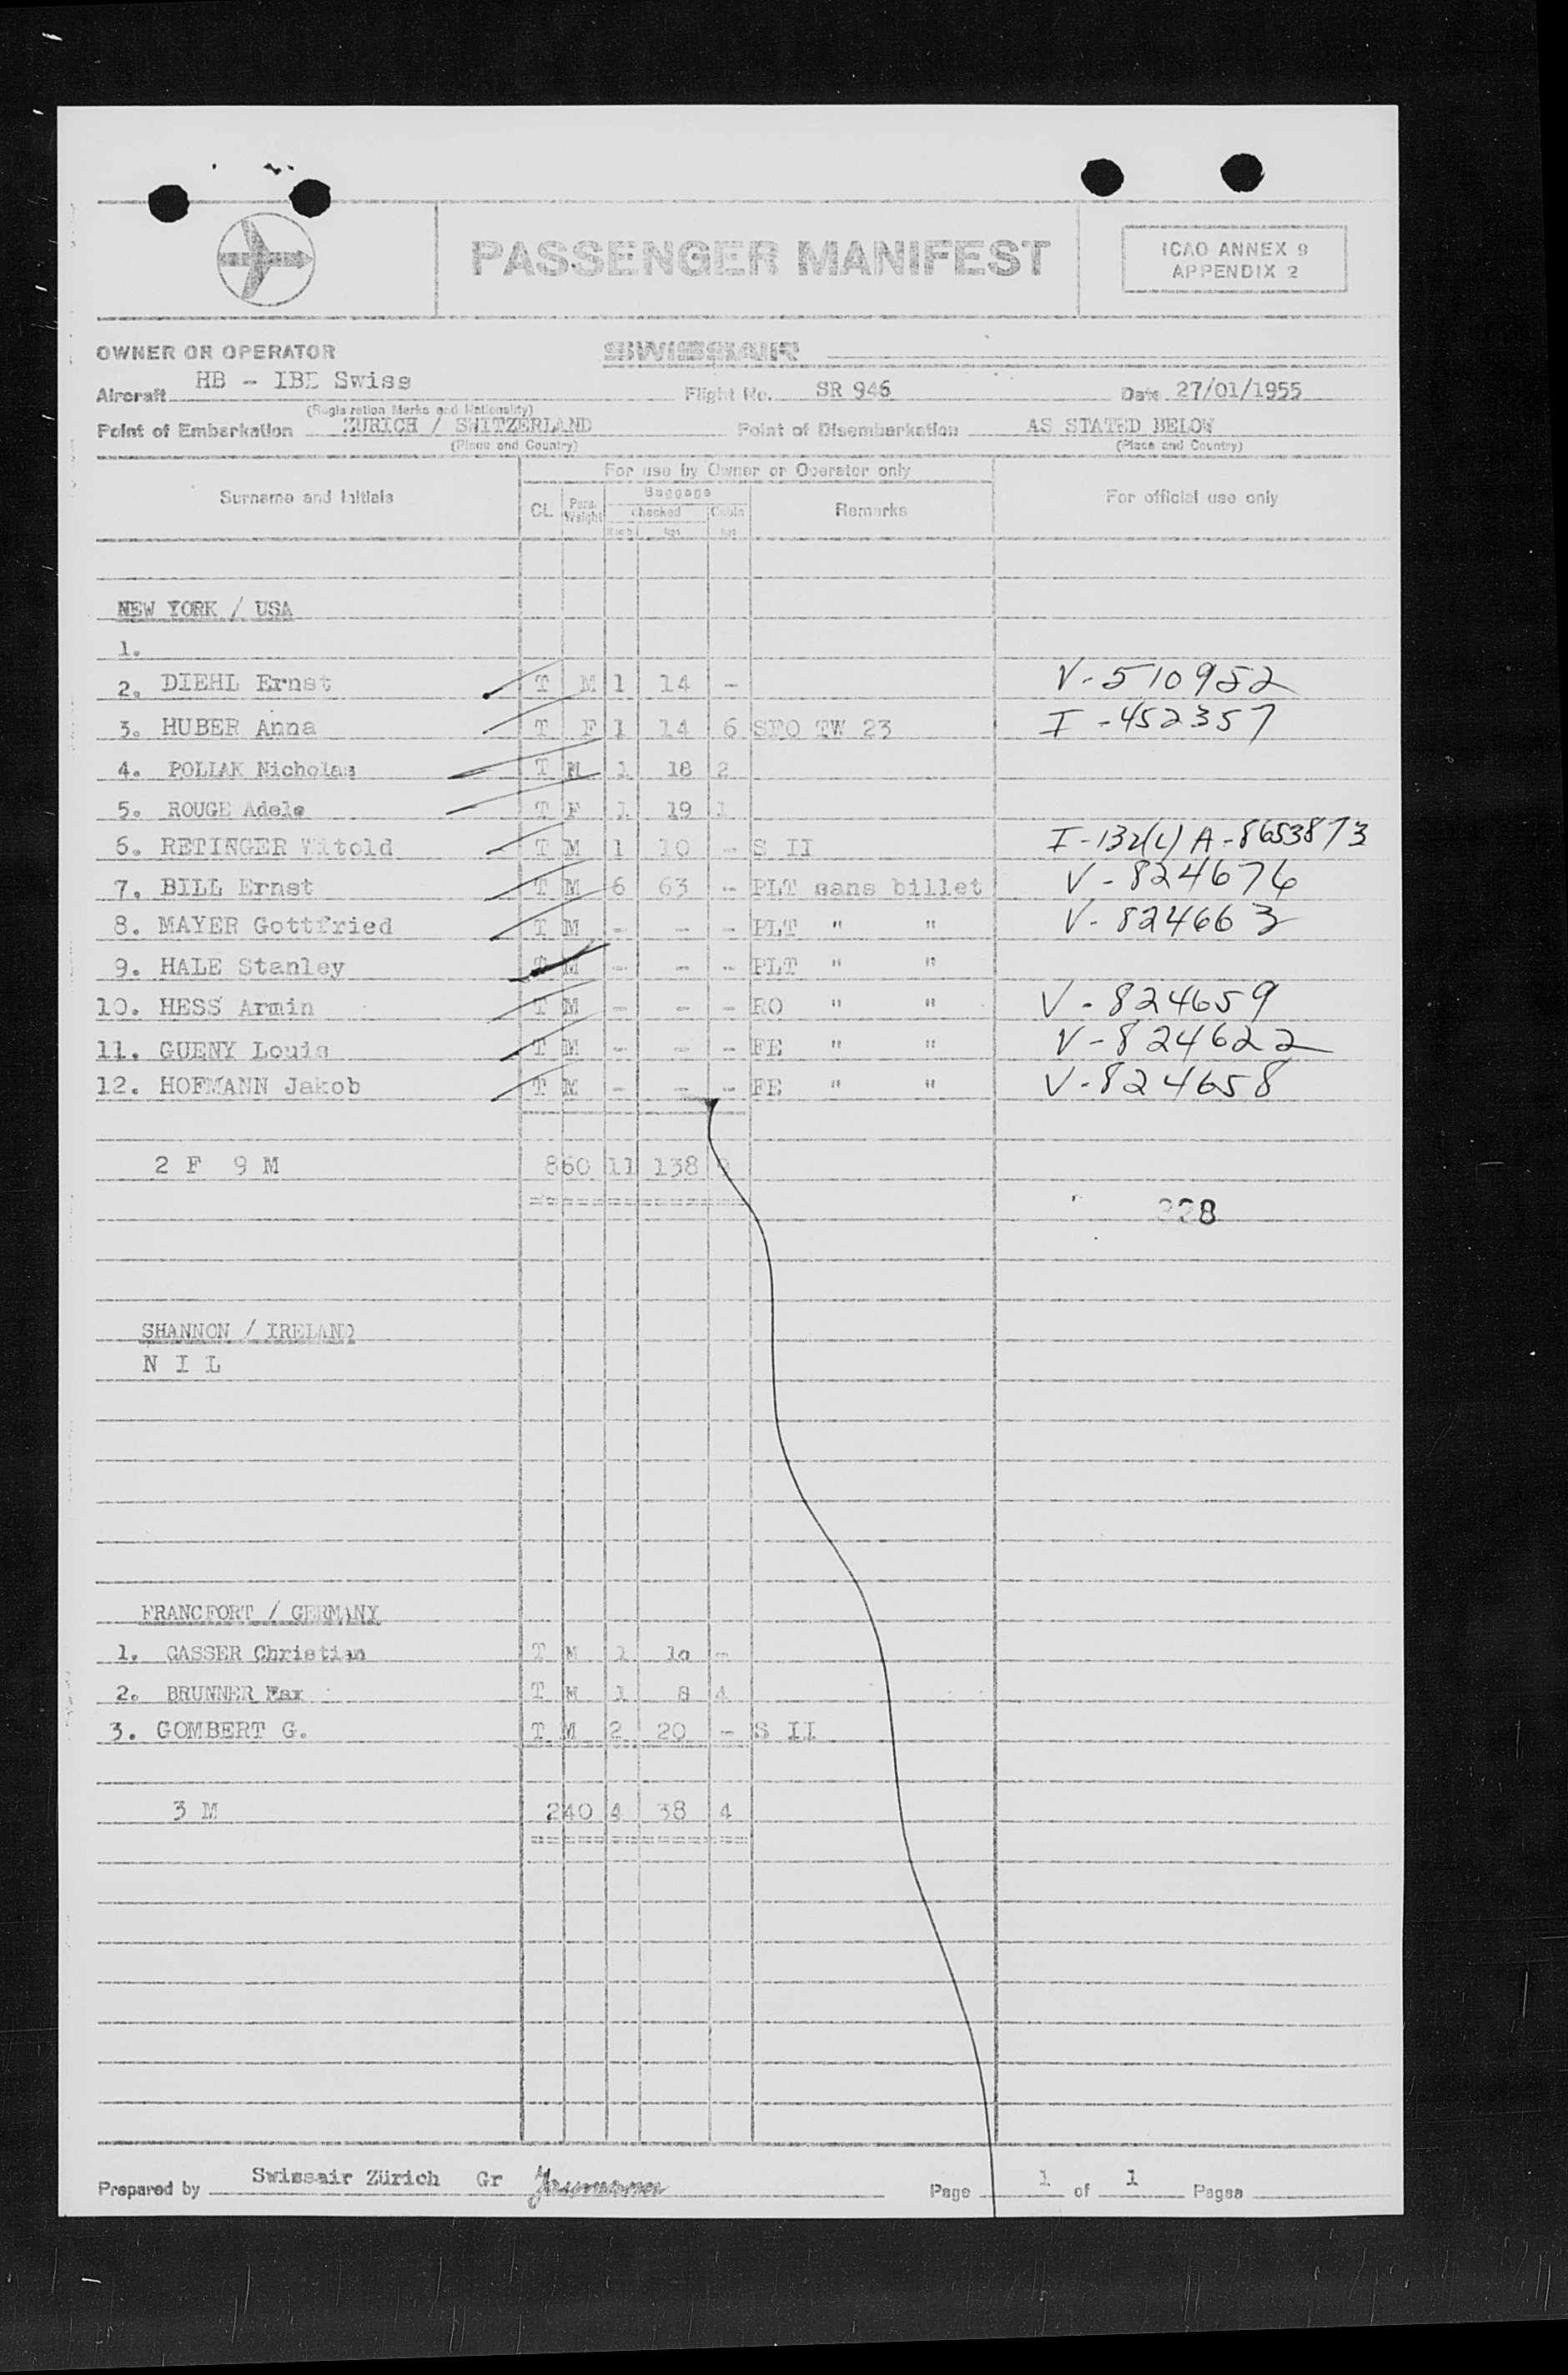 PASSENGER MANIFEST
ICAO ANNEX 9
APPENDIX 2
OWNER OR OPERATOR SWISSAIR
Aircraft HB - IBE Swiss Flight No. SR 946 Date 27/01/1955
(Registration Marks and Nationality)
Point of Embarkation ZURICH / SWITZERLAND Point of Disembarkation AS STATED BELOW
(Place and Country) (Place and Country)
For use by Owner or Operator only
Surname and Initials CL. Pass. Weight Baggage checked Cabin Remarks For official use only
kgs kgs
NEW YORK / USA
1.
2. DIEHL Ernst T M 1 14 - V-510952
3. HUBER Anna T F 1 14 6 SFO TW 23 I-452357
4. POLIAK Nicholas T M 1 18 2
5. ROUGE Adele T F 1 19 1
6. RETINGER Witold T M 1 10 - S II I-132(c) A-8653873
7. BILL Ernst T M 6 63 - PLT sans billet V-824676
8. MAYER Gottfried T M - - - PLT " " V-824663
9. HALE Stanley T M - - - PLT " "
10. HESS Armin T M - - - RO " " V-824659
11. GUENY Louis T M - - - FE " " V-824622
12. HOFMANN Jakob T M - - - FE " " V-824658
2 F 9 M 860 11 138
SHANNON / IRELAND
N I L
FRANCFORT / GERMANY
1. GASSER Christian T M 1 10 -
2. BRUNNER Max T M 1 8 4
3. GOMBERT G. T M 2 20 - S II
3 M 240 4 38 4
Prepared by Swissair Zürich Gr Page 1 of 1 Pages